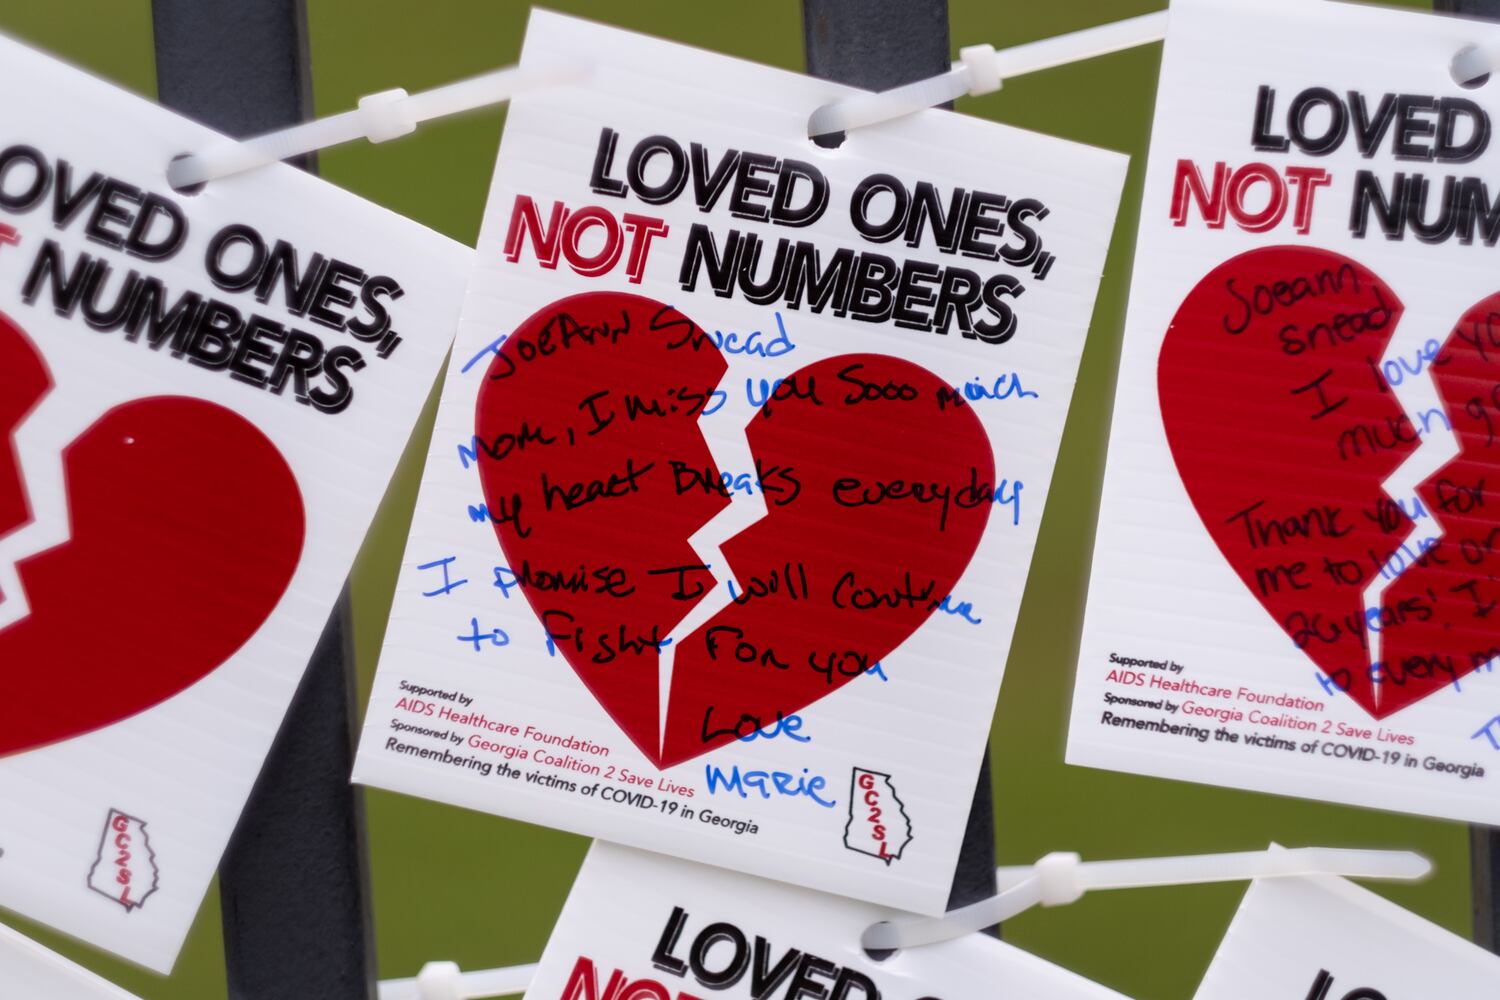 LOVED ONES,
NOT NUMBERS
GC2SL
LOVED ONES,
NOT NUMBERS
JoeAnn Snead
Mom, I miss you Sooo much
my heart Breaks everyday
I promise I will Continue
to Fight For you
Love
Marie
Supported by
AIDS Healthcare Foundation
Sponsored by Georgia Coalition 2 Save Lives
Remembering the victims of COVID-19 in Georgia
GC2SL
LOVED
NOT NUM
Joeann
snead
I love yo
much
Thank you for
me to love
26 years! I
to every
Supported by
AIDS Healthcare Foundation
Sponsored by Georgia Coalition 2 Save Lives
Remembering the victims of COVID-19 in Georgia
LOVED
NOT
LO